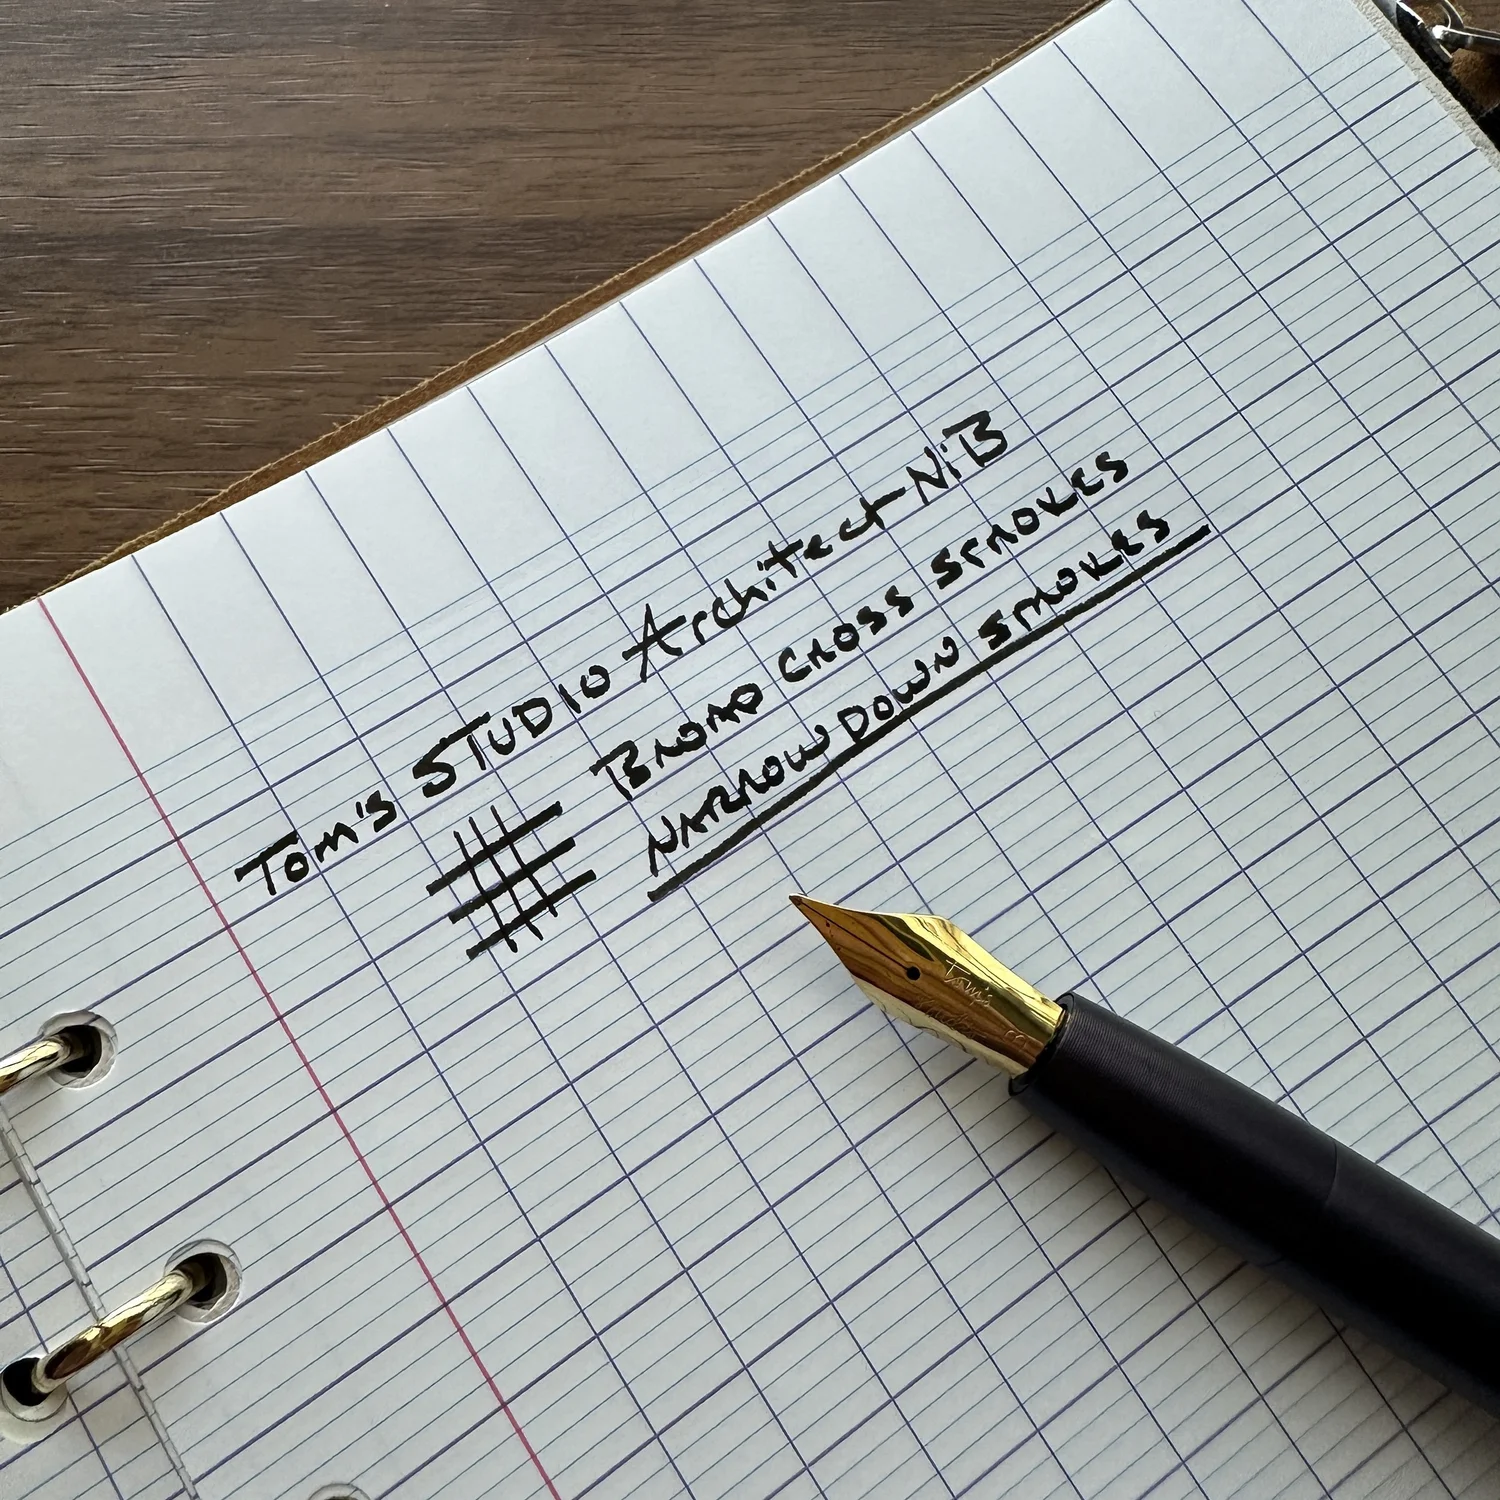 Tom's STUDIO Architect NiB
BROAD CROSS STROKES
NARROW DOWN STROKES
Tom's